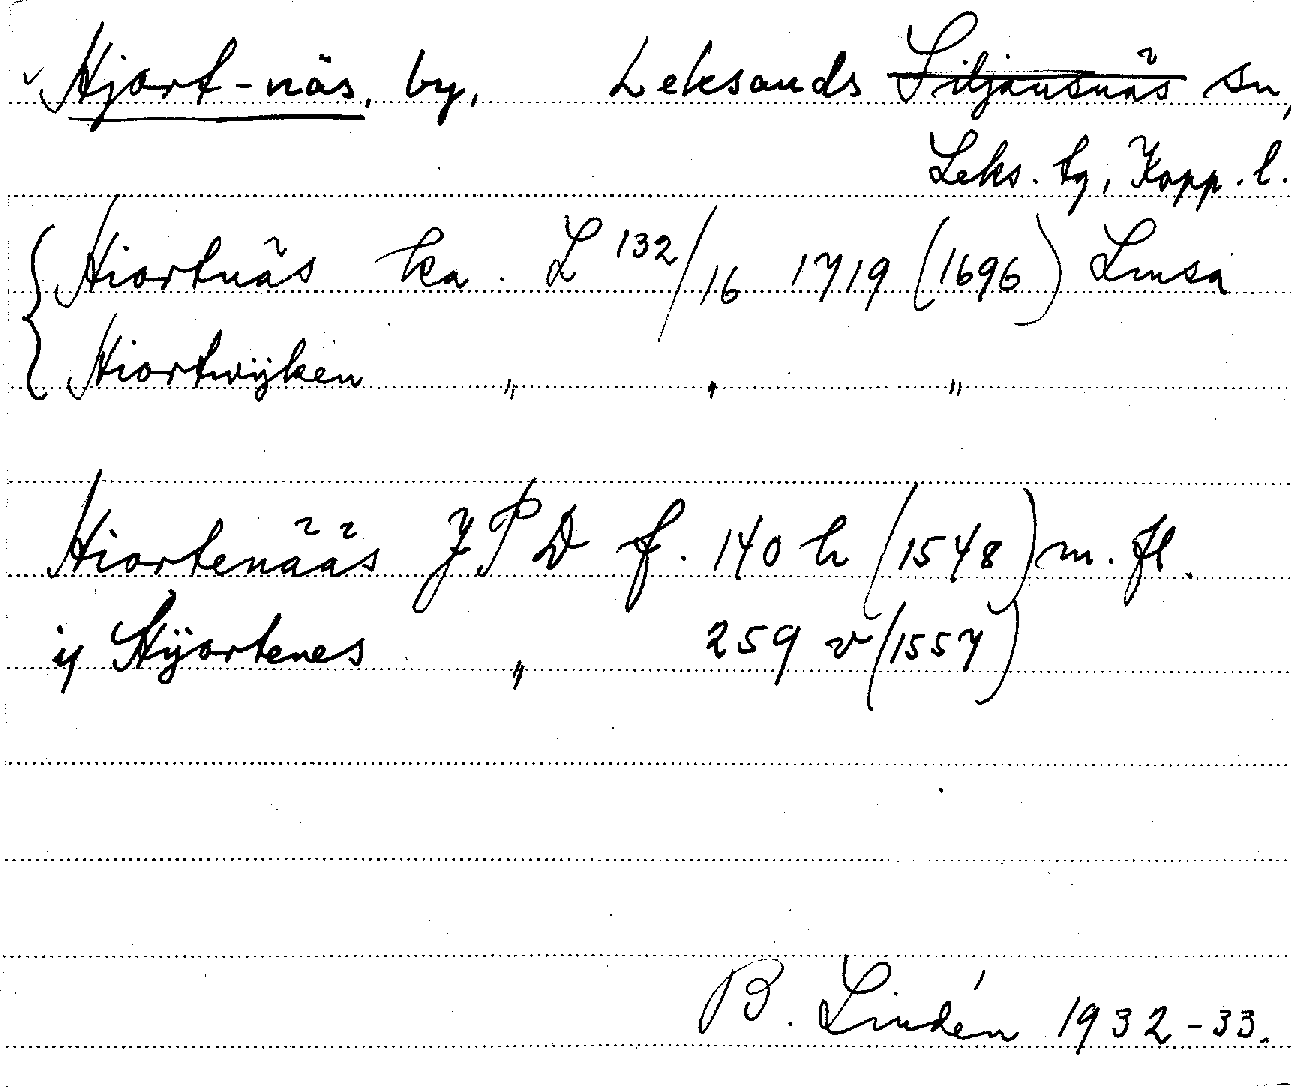 Hjort-näs, by, Leksands Siljansnäs sn,
Leks. tg, Kopp. l.
Hiortnäs ka. L 132/16 1719 (1696) Lmsa
Hiortwijken " " "
Hiortenääs JPD f. 140 h (1548) m. fl.
ij Hÿortenes " 259 v (1557)
B. Lindén 1932-33.